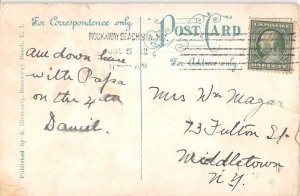 For Correspondence only
POST CARD
For Address only
ROCKAWAY BEACH STA.
Am down here
with Papa
on the 4th
Daniel.
Mrs Wm Magar
73 Fulton St
Middletown
N.Y.
Published by S. Hirshberg, Rockaway Beach, L. I.